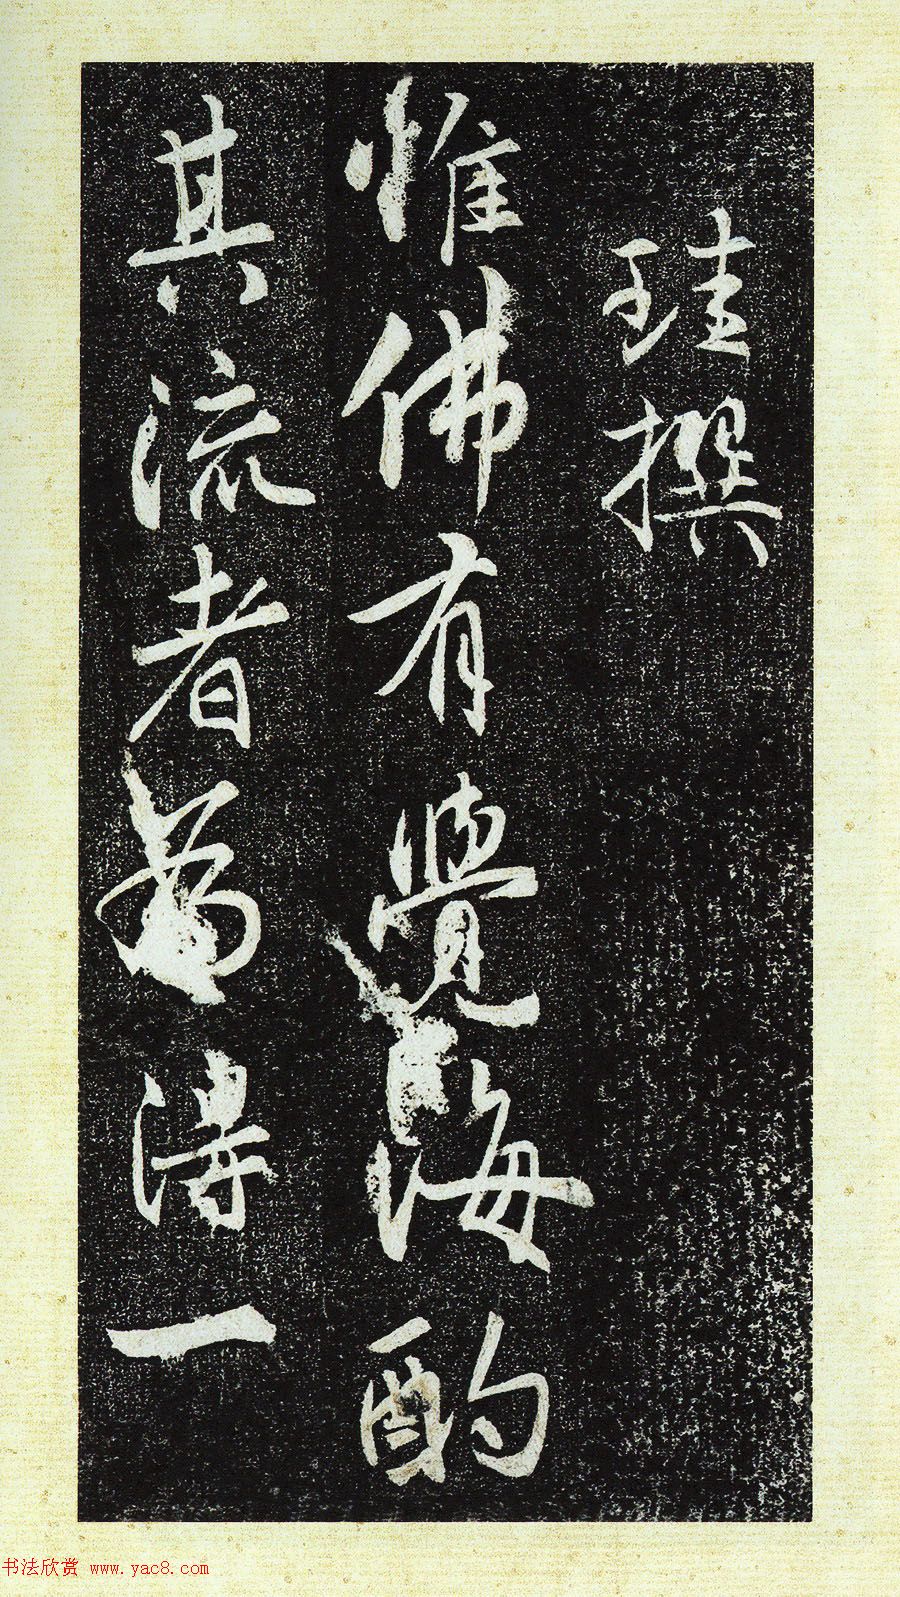 珪撰
惟佛有覺海酌
其流者為得一
书法欣赏 www.yac8.com